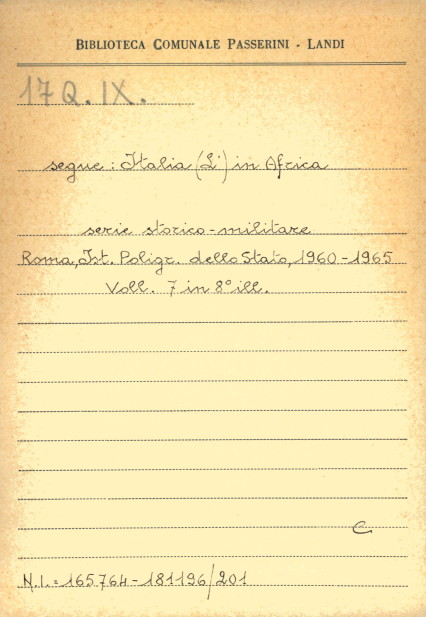 BIBLIOTECA COMUNALE PASSERINI - LANDI
17 Q. IX.
segue: Italia (L') in Africa
serie storico-militare
Roma, Ist. Poligr. dello Stato, 1960-1965
Voll. 7 in 8° ill.
C
N.I. = 165764-181196/201